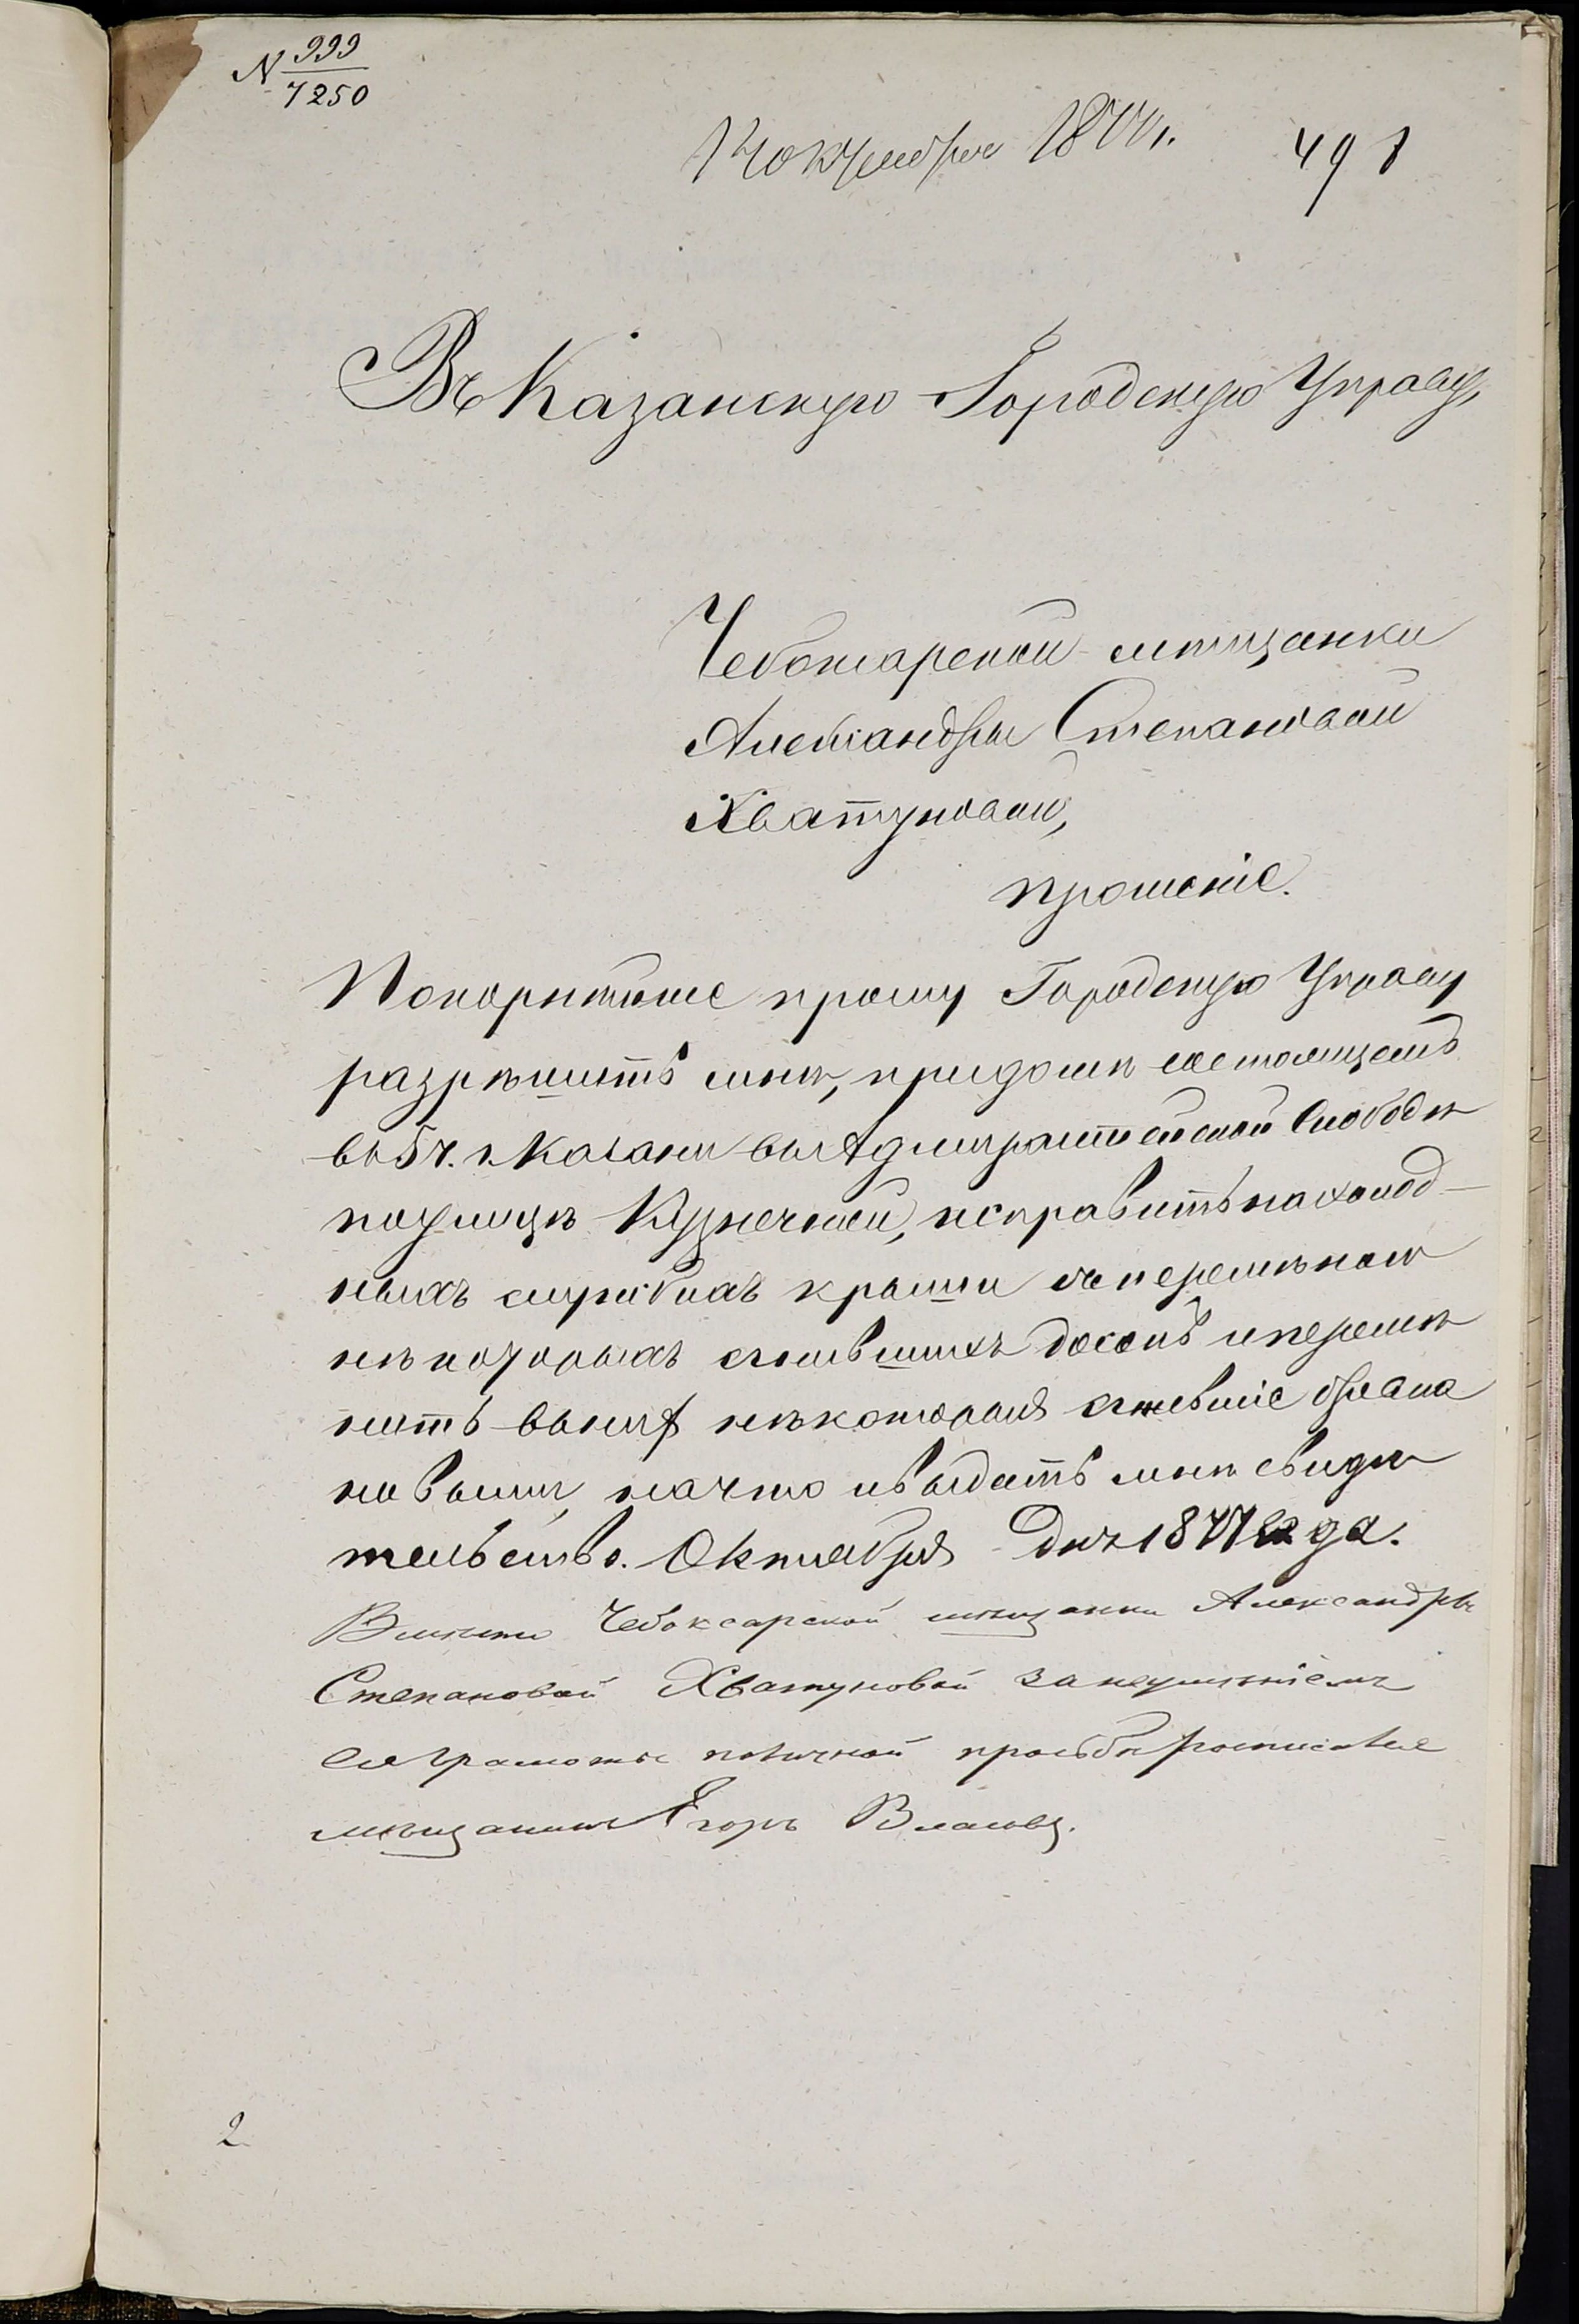 № 999/7250
12 октября 1877 г. 498
Въ Казанскую Городскую Управу,
Чебоксарской мѣщанки
Александры Степановой
Хватуновой,
прошеніе.
Покорнѣйше прошу Городскую Управу
разрѣшить мнѣ, при домѣ состоящемъ
въ 5 ч. г. Казани въ Адмиралтейской Слободѣ
по улицѣ Кузнечной, исправить на холод-
ныхъ службахъ крыши съ перемѣною
нѣкоторыхъ сгнившихъ досокъ и перемѣ
нить въ нихъ нѣкоторыя сгнившіе бревна
новыми, на что и выдать мнѣ свидѣ
тельство. Октября дня 1877 года.
Вмѣсто Чебоксарской мѣщанки Александры
Степановой Хватуновой за неумѣніемъ
ея грамотѣ по личной просьбѣ росписался
мѣщанинъ Егоръ Власовъ.
2